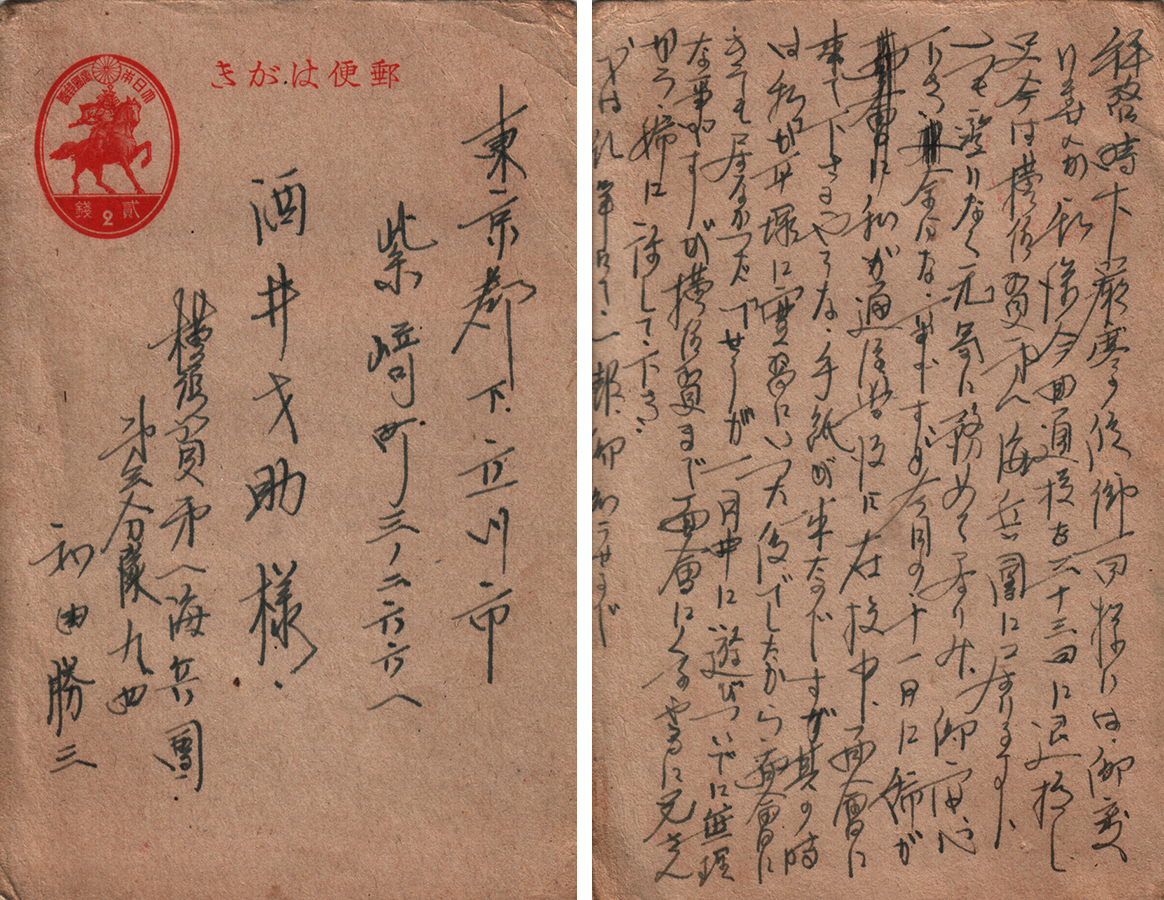 郵便はがき
大日本帝國郵便
貳錢
2
東京都下立川市
柴崎町三ノ二六六八
酒井才助様
横須賀第一海兵團
第 分隊九ノ四
和田勝三
拝啓時下厳寒の候御一同様には御変
りませんか 私儀今回通校を二十三日に退校し
又今は横須賀第一海兵團に居ります
いつも変りなく元気に務めて居ります 御安心
下さい 今日な筆ですが今月の十一日に姉が
面會に私が通信學校に在校中、面會に
来て下さるやうな手紙が来たのですが其の時
は私が平塚に実習にいつた後でしたから面會に
きても居なかつたでせうが 日中に遊びついでに無理
な事ですが横須賀まで面會にくるやうに兄さん
から姉に話して下さい
では乱筆にて一報御知らせまで